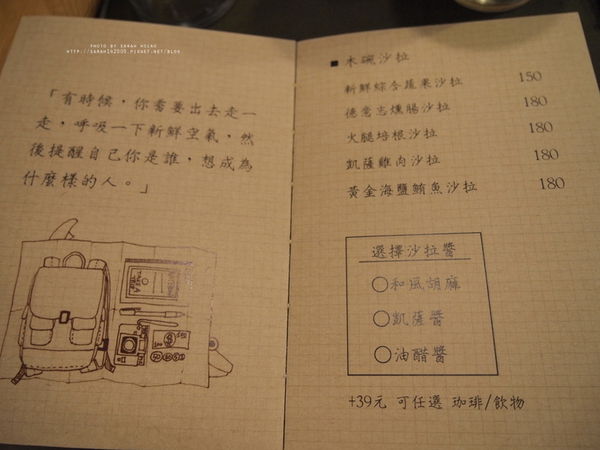 PHOTO BY SARAH HSIAO
HTTP://SARAH162005.PIXNET.NET/BLOG
「有時候，你需要出去走一
走，呼吸一下新鮮空氣，然
後提醒自己你是誰，想成為
什麼樣的人。」
■木碗沙拉
新鮮綜合蔬果沙拉 150
德意志燻腸沙拉 180
火腿培根沙拉 180
凱薩雞肉沙拉 180
黃金海鹽鮪魚沙拉 180
選擇沙拉醬
○和風胡麻
○凱薩醬
○油醋醬
+39元 可任選 珈琲/飲物